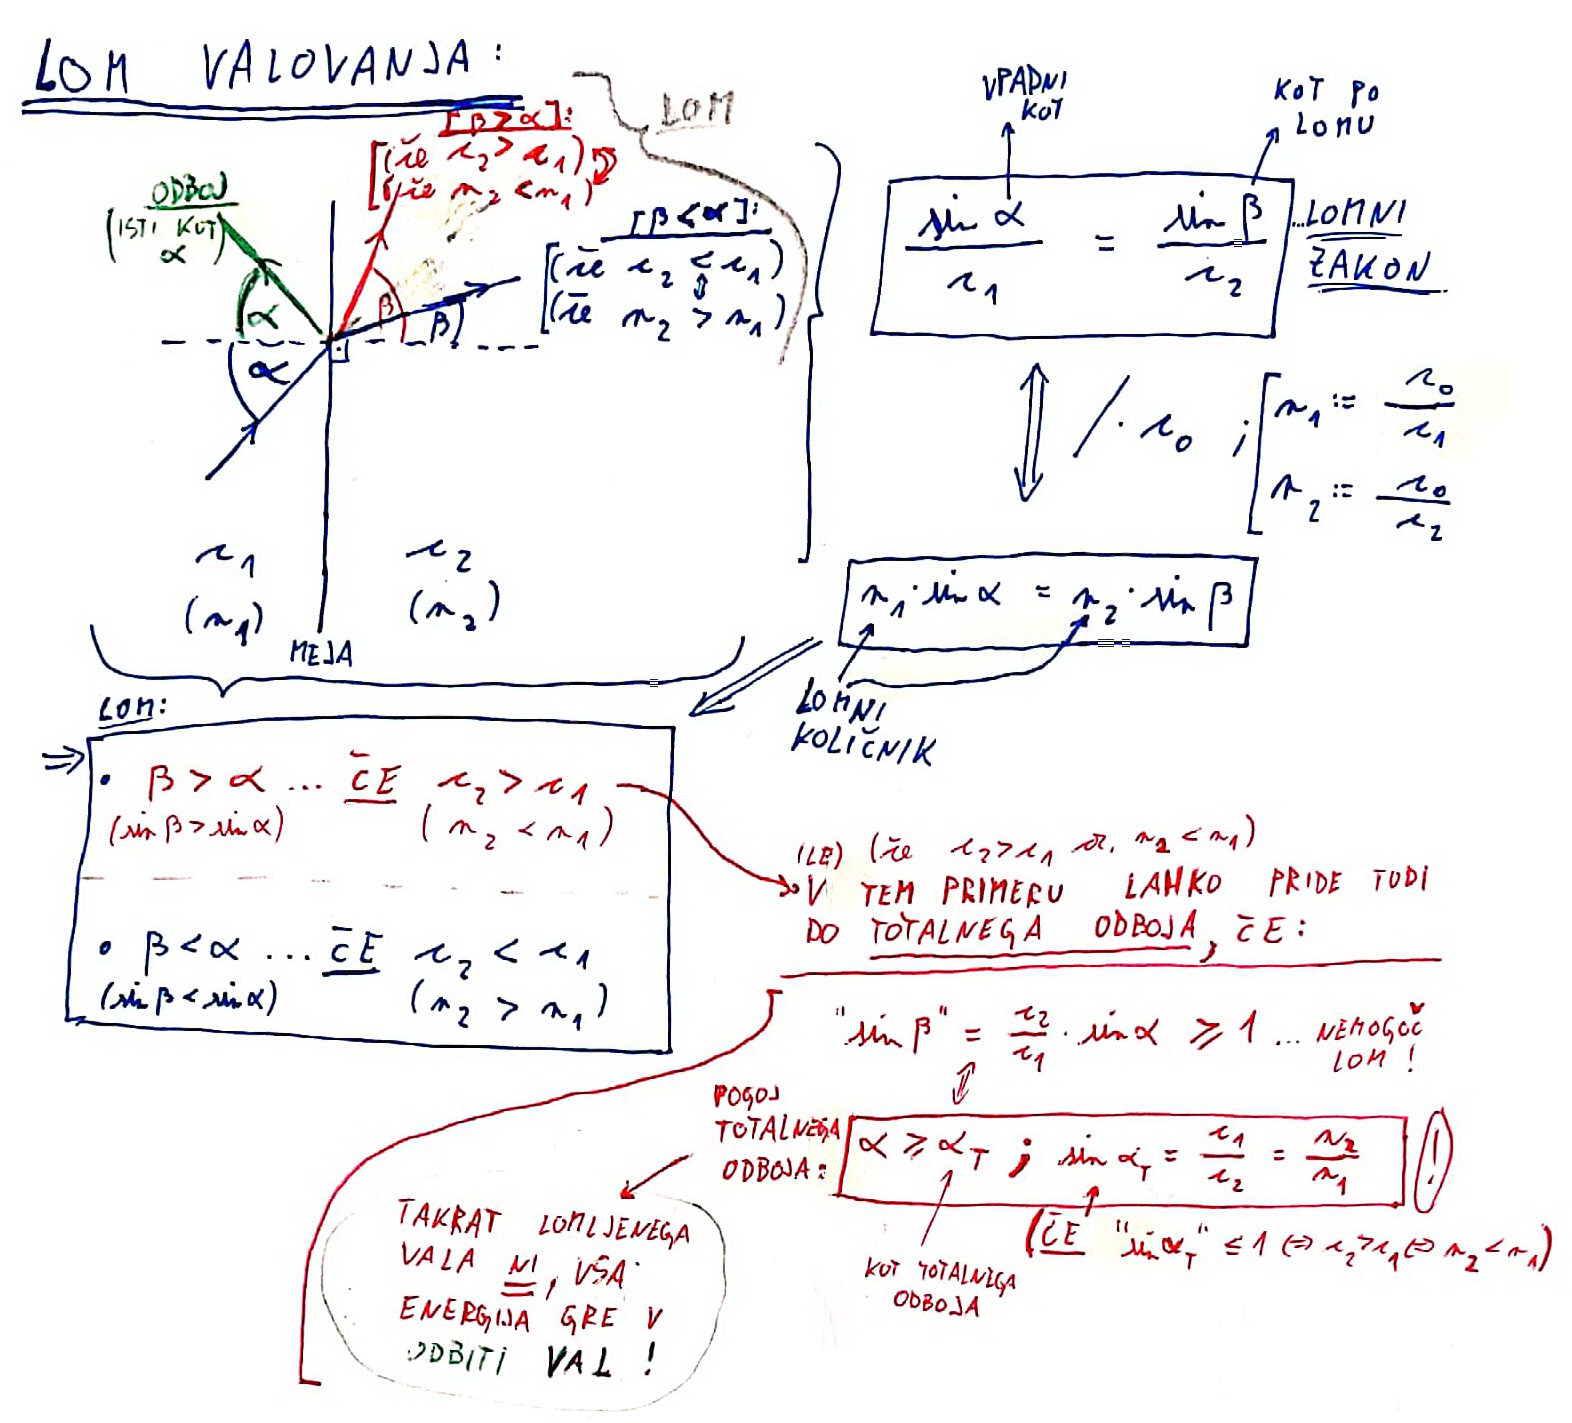 LOM VALOVANJA:
LOM
[β > α]:
(če c₂ > c₁)
(če n₂ < n₁)
ODBOJ
(ISTI KOT α)
[β < α]:
(če c₂ < c₁)
(če n₂ > n₁)
α
α
β
β
c₁
(n₁)
c₂
(n₂)
MEJA
VPADNI KOT
KOT PO LOMU
sin α / c₁ = sin β / c₂
...LOMNI ZAKON
/ · c₀ ; n₁ := c₀ / c₁
n₂ := c₀ / c₂
n₁ · sin α = n₂ · sin β
LOMNI KOLIČNIK
LOM:
⇒ • β > α ... ČE c₂ > c₁
(sin β > sin α) (n₂ < n₁)
• β < α ... ČE c₂ < c₁
(sin β < sin α) (n₂ > n₁)
(LE) (če c₂ > c₁ oz. n₂ < n₁)
V TEM PRIMERU LAHKO PRIDE TUDI
DO TOTALNEGA ODBOJA, ČE:
"sin β" = c₂ / c₁ · sin α ≥ 1 ... NEMOGOČ LOM!
POGOJ
TOTALNEGA
ODBOJA:
α ≥ α_T ; sin α_T = c₁ / c₂ = n₂ / n₁
!
(ČE "sin α_T" ≤ 1 ⇔ c₂ > c₁ ⇔ n₂ < n₁)
KOT TOTALNEGA
ODBOJA
TAKRAT LOMLJENEGA
VALA NI, VSA
ENERGIJA GRE V
ODBITI VAL !